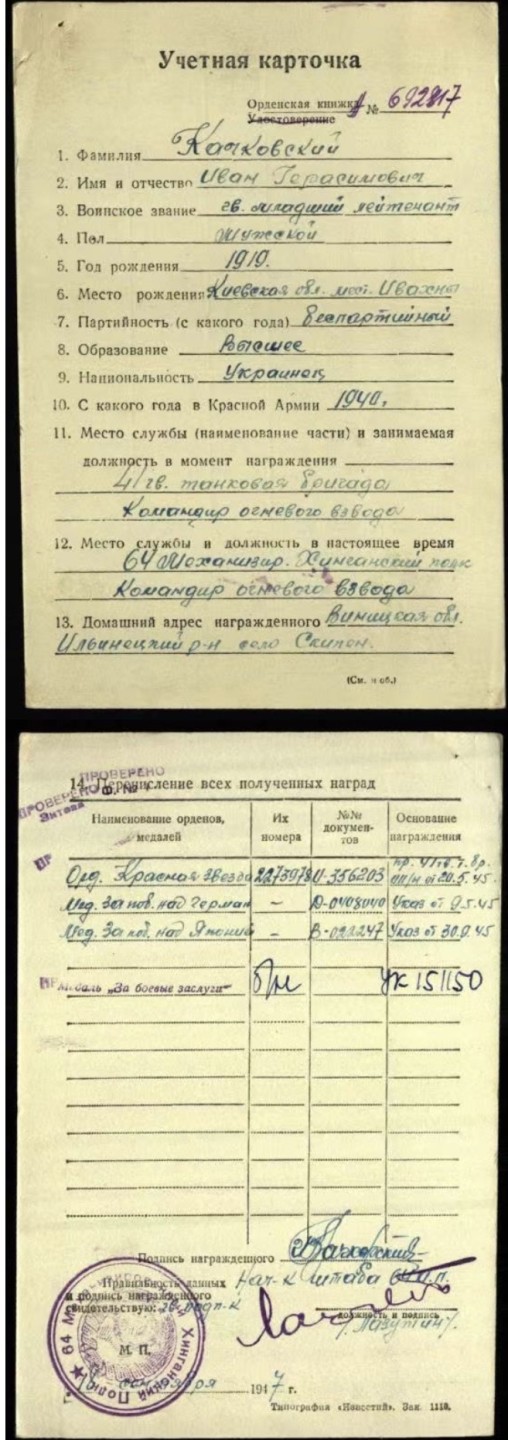 Учетная карточка
Орденская книжка А № 692817
Удостоверение
1. Фамилия Качковский
2. Имя и отчество Иван Герасимович
3. Воинское звание гв. младший лейтенант
4. Пол Мужской
5. Год рождения 1919.
6. Место рождения Киевская обл. мест. Ивахны
7. Партийность (с какого года) беспартийный
8. Образование Высшее
9. Национальность Украинец
10. С какого года в Красной Армии 1940.
11. Место службы (наименование части) и занимаемая
должность в момент награждения
41 гв. танковая бригада
Командир огневого взвода
12. Место службы и должность в настоящее время
64 Механизир. Хинганский полк
Командир огневого взвода
13. Домашний адрес награжденного Виницкая обл.
Ильинецкий р-н село Скипен.
(См. н об.)
ПРОВЕРЕНО
14. Перечисление всех полученных наград
ПРОВЕРЕНО Ф. №
Наименование орденов, медалей
Их номера
№№ документов
Основание награждения
Орд. Красная Звезда 2273978 И-356203 пр. 41 гв. т. бр. от 20.5.45.
Мед. За поб. над Герман - Д-0408040 Указ от 9.5.45
Мед. За поб. над Японией - В-022247 Указ от 30.9.45
Медаль „За боевые заслуги“ б/н УК 151150
Подпись награжденного
Правильность данных Нач-к штаба 64 м.п.
и подпись награжденного
свидетельствую: гв. подп-к
должность и подпись
/Лазутин/.
64 Механизированный Хинганский Полк
М. П.
1947 г.
Типография «Известий». Зак. 1118.